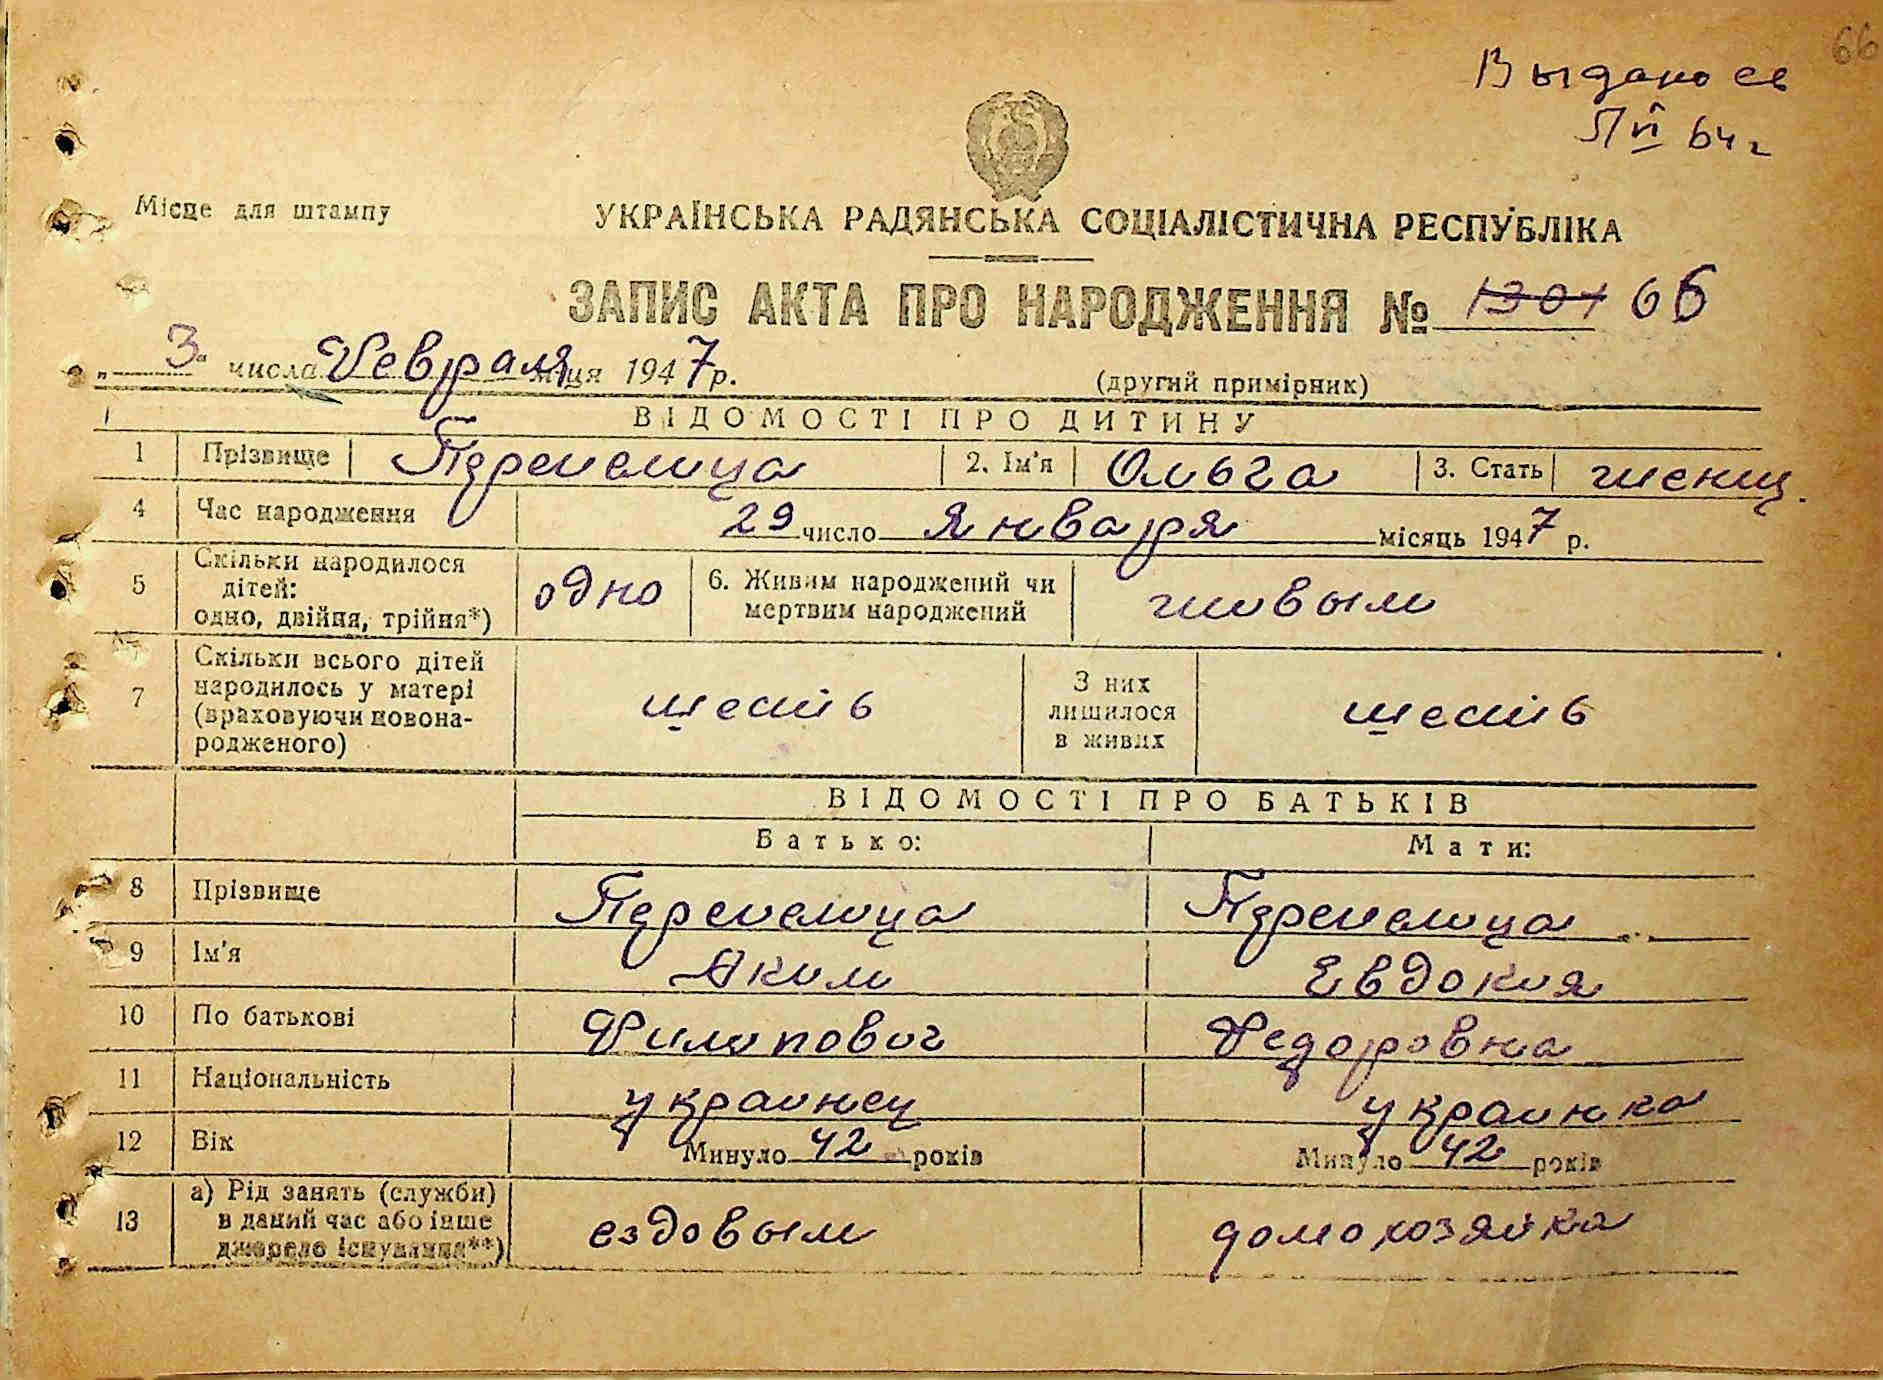 66
Выдано св
Л VI 64 г
Місце для штампу
УКРАЇНСЬКА РАДЯНСЬКА СОЦІАЛІСТИЧНА РЕСПУБЛІКА
ЗАПИС АКТА ПРО НАРОДЖЕННЯ № 1301 66
„ 3 " числа Февраля місяця 1947 р.
(другий примірник)
ВІДОМОСТІ ПРО ДИТИНУ
1 Прізвище Перепелица 2. Ім'я Ольга 3. Стать женщ.
4 Час народження 29 число Января місяць 1947 р.
5 Скільки народилося дітей: одно, двійня, трійня*) одно 6. Живим народжений чи мертвим народжений живым
7 Скільки всього дітей народилось у матері (враховуючи новонародженого) шесть З них лишилося в живих шесть
ВІДОМОСТІ ПРО БАТЬКІВ
Батько: Мати:
8 Прізвище Перепелица Перепелица
9 Ім'я Аким Евдокия
10 По батькові Филипович Федоровна
11 Національність украинец украинка
12 Вік Минуло 42 років Минуло 42 років
13 а) Рід занять (служби) в даний час або інше джерело існування**) ездовым домохозяйка